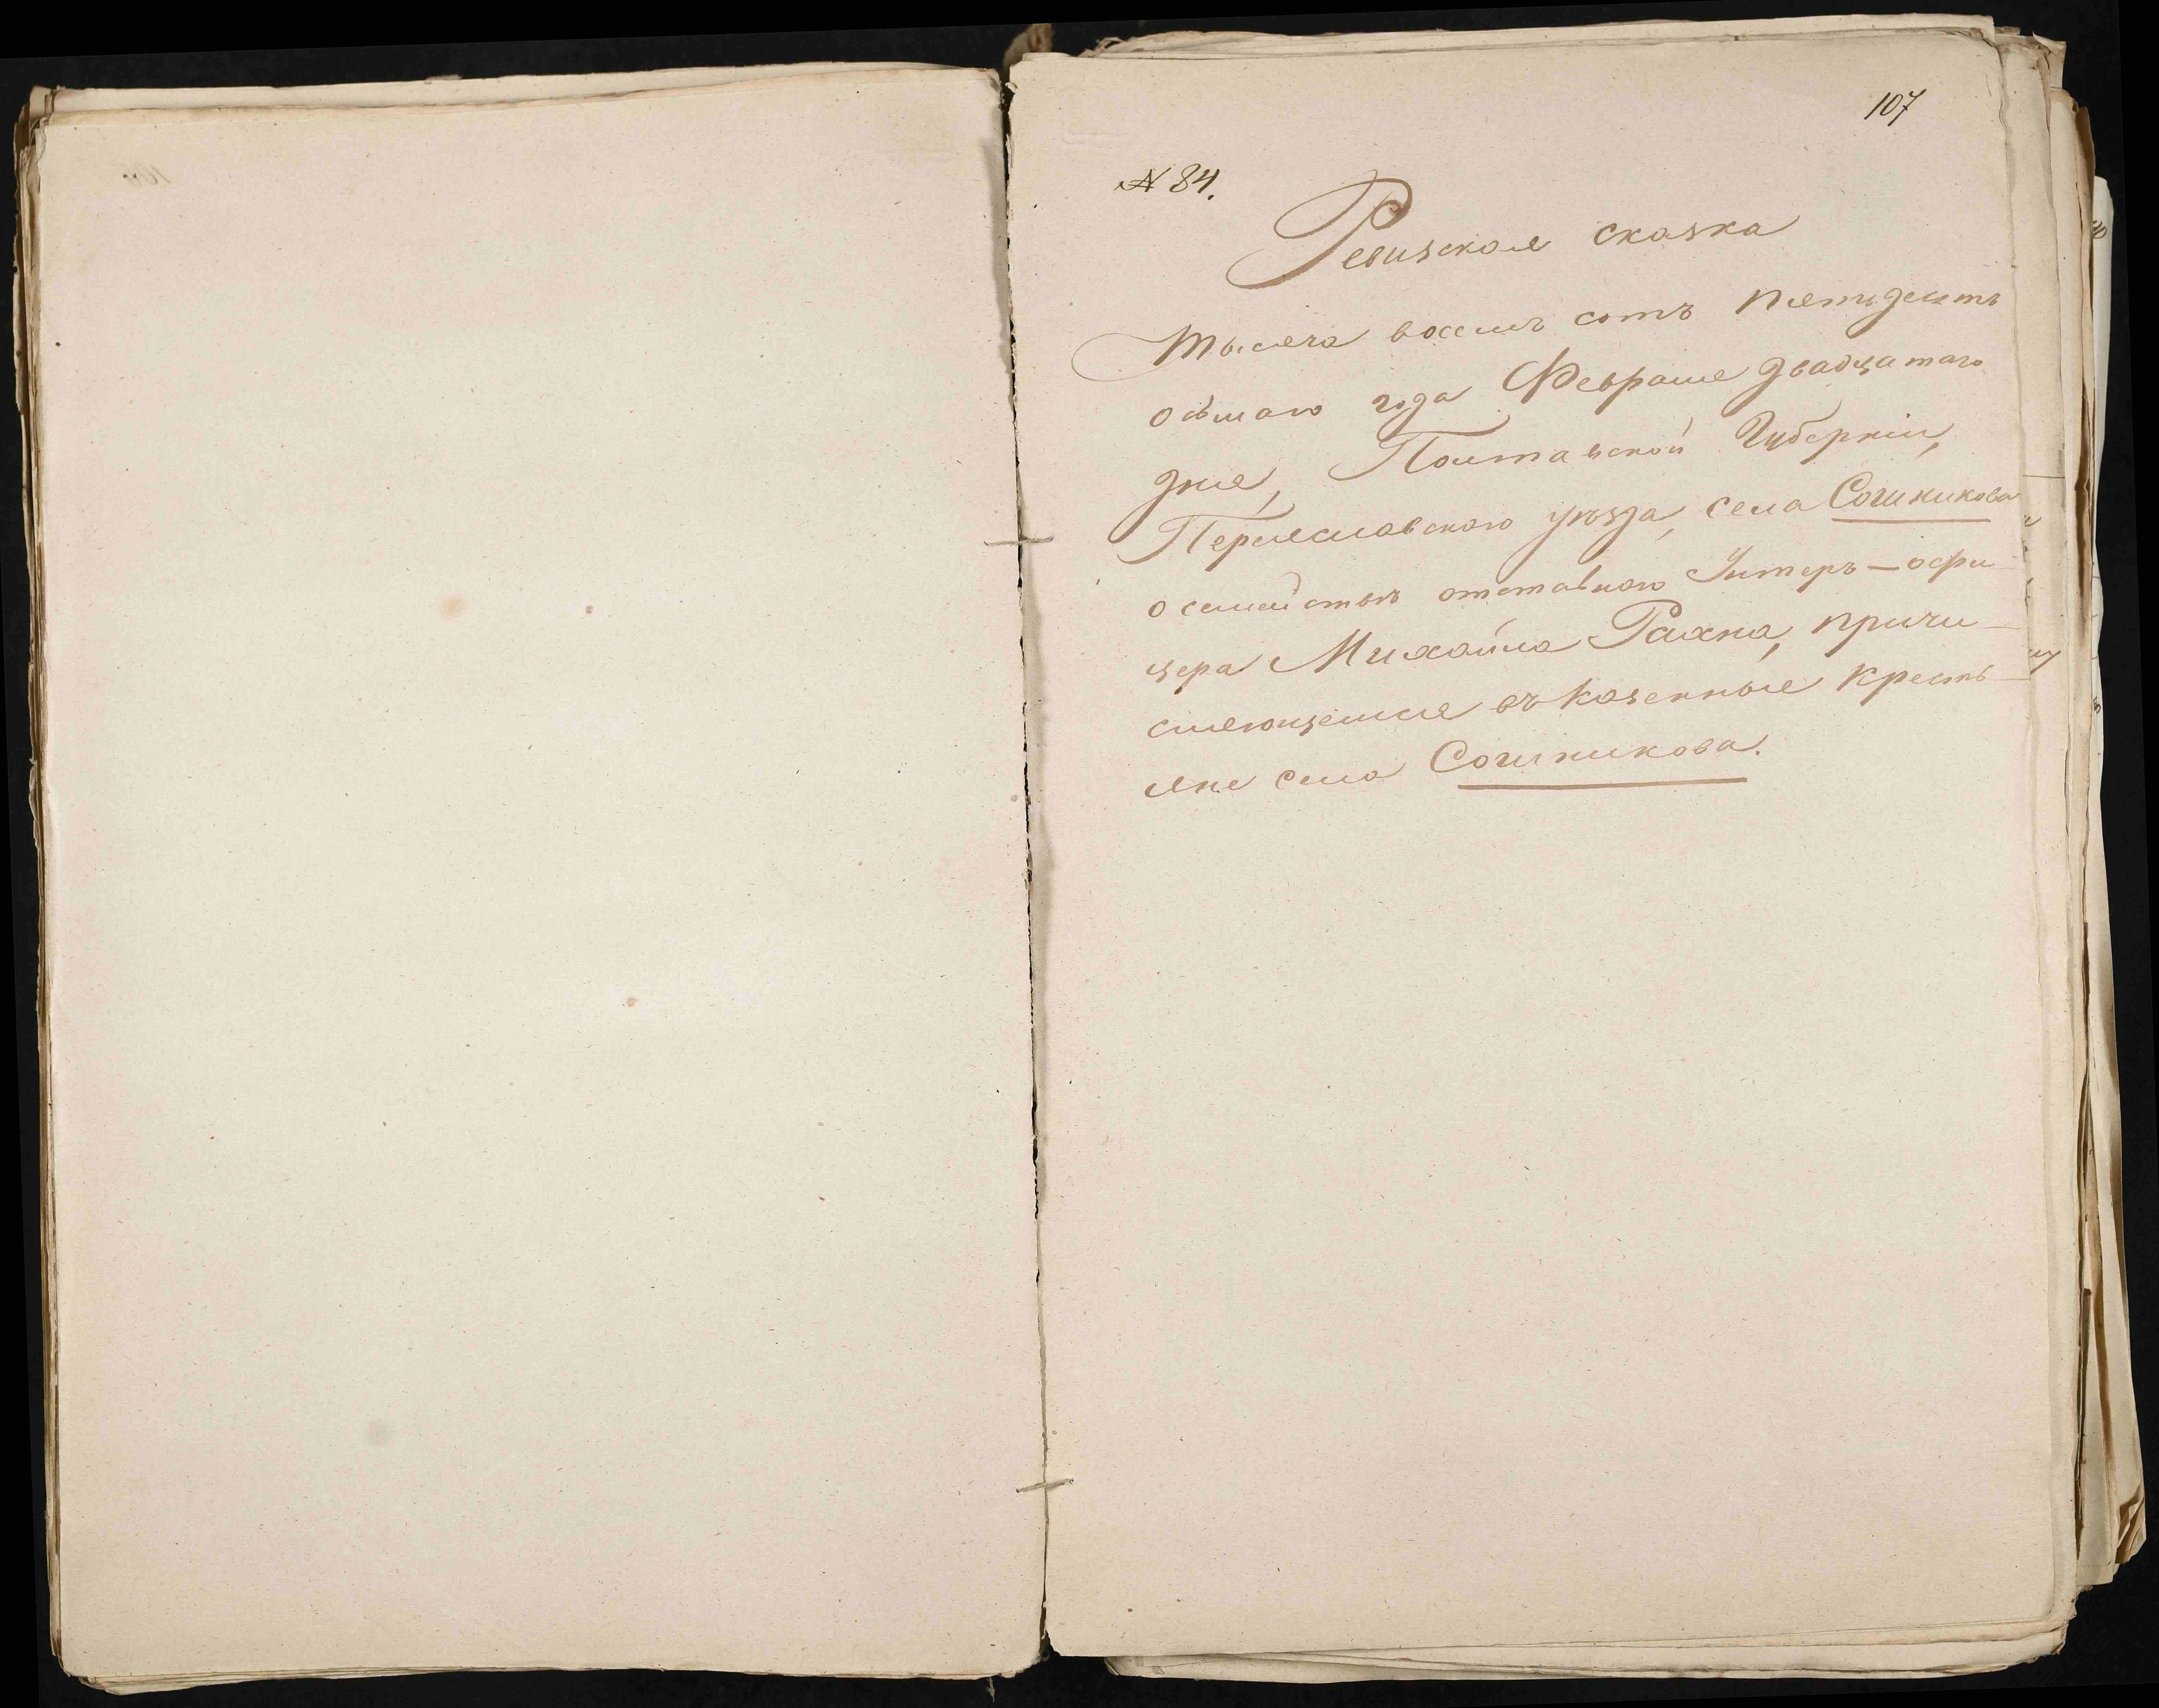 107
№ 84.
Ревизская сказка
Тысяча восемь сотъ пятьдесятъ
осьмаго года Февраля двадцатаго
дня, Полтавской Губерніи,
Переяславского уѣзда, села Сошникова
о семействѣ отставного Унтеръ-офи
цера Михайла Рахна, причи-
сляющемся въ казенные кресть-
яне села Сошникова.